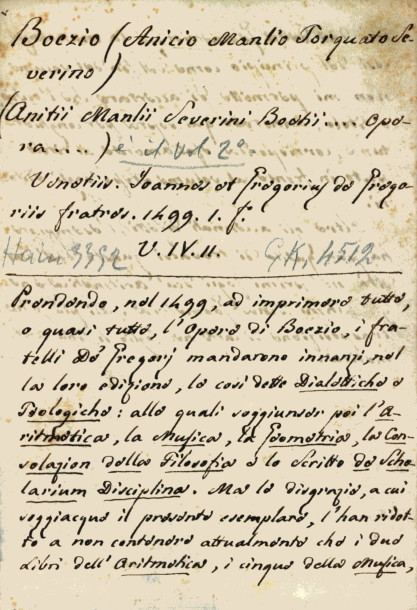 Boezio (Anicio Manlio Torquato Se-
verino)
(Anitii Manlii Severini Boetii .... Ope-
ra ....) è il vol. 2°.
Venetiis. Joannes et Gregorius de Grego-
riis fratres. 1499. 1. f.
Hain 3352 V. IV. 11. GK, 4512
Prendendo, nel 1499, ad imprimere tutte,
o quasi tutte, l'Opere di Boezio, i fra-
telli De' Gregorj mandarono innanzi, nel
la loro edizione, le così dette Dialettiche e
Teologiche: alle quali soggiunser poi l'A-
ritmetica, la Musica, la Geometria, la Con-
solazion della Filosofia e lo Scritto de Scho-
larium Disciplina. Ma le disgrazie, a cui
soggiacque il presente esemplare, l'han ridot-
to a non contenere attualmente che i due
Libri dell'Aritmetica, i cinque della Musica,